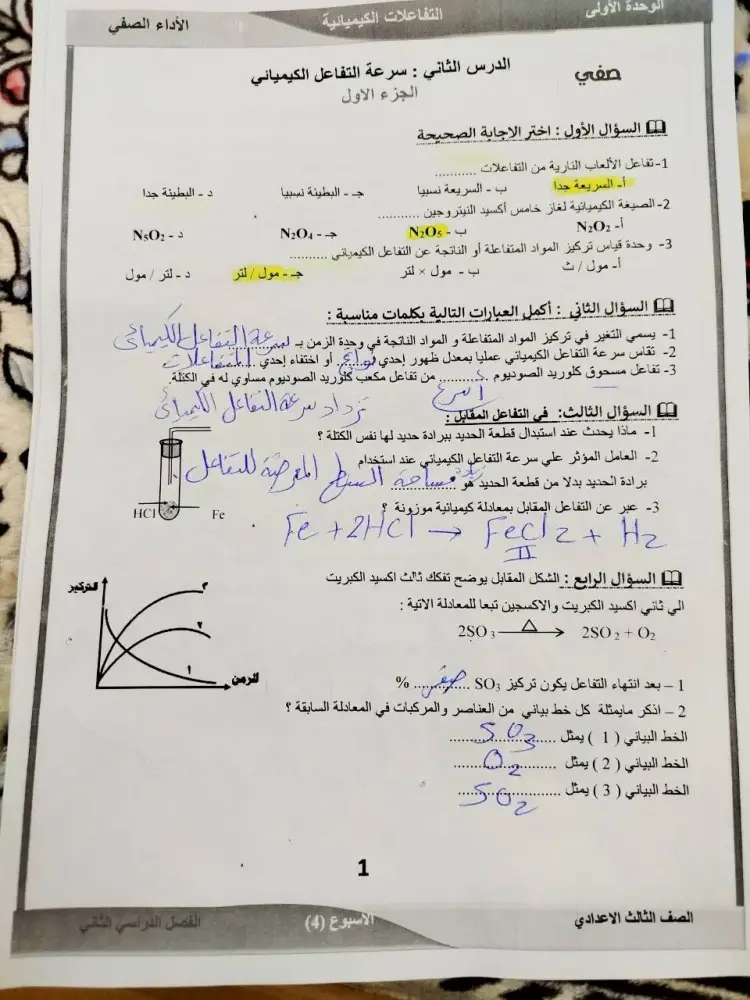 الوحدة الأولى
التفاعلات الكيميائية
الأداء الصفي
صفي
الدرس الثاني : سرعة التفاعل الكيميائي
الجزء الاول
السؤال الأول : اختر الاجابة الصحيحة
1-تفاعل الألعاب النارية من التفاعلات ............
أ- السريعة جدا ب - السريعة نسبيا جـ - البطيئة نسبيا د - البطيئة جدا
2-الصيغة الكيميائية لغاز خامس أكسيد النيتروجين ............
أ- N₂O₂ ب - N₂O₅ جـ - N₂O₄ د - N₅O₂
3- وحدة قياس تركيز المواد المتفاعلة أو الناتجة عن التفاعل الكيميائي ............
أ- مول / ث ب - مول × لتر جـ - مول / لتر د - لتر / مول
السؤال الثاني : أكمل العبارات التالية بكلمات مناسبة :
1- يسمي التغير في تركيز المواد المتفاعلة و المواد الناتجة في وحدة الزمن بـ سرعة التفاعل الكيميائى
2- تقاس سرعة التفاعل الكيميائي عمليا بمعدل ظهور إحدي نواتج أو اختفاء إحدي المتفاعلات
3- تفاعل مسحوق كلوريد الصوديوم ............ من تفاعل مكعب كلوريد الصوديوم مساوي له في الكتلة.
أسرع
السؤال الثالث: في التفاعل المقابل :
تزداد سرعة التفاعل الكيميائى
1- ماذا يحدث عند استبدال قطعة الحديد ببرادة حديد لها نفس الكتلة ؟
2- العامل المؤثر علي سرعة التفاعل الكيميائي عند استخدام
برادة الحديد بدلا من قطعة الحديد هو مساحة السطح المعرضة للتفاعل
HCl Fe
3- عبر عن التفاعل المقابل بمعادلة كيميائية موزونة ؟
Fe + 2HCl → FeCl₂ + H₂
II
السؤال الرابع : الشكل المقابل يوضح تفكك ثالث اكسيد الكبريت
الي ثاني اكسيد الكبريت والاكسجين تبعا للمعادلة الاتية :
2SO₃ —Δ→ 2SO₂ + O₂
التركيز
٣
٢
١
الزمن
1 – بعد انتهاء التفاعل يكون تركيز SO₃ صفر %
2 – اذكر مايمثلة كل خط بياني من العناصر والمركبات في المعادلة السابقة ؟
الخط البياني ( 1 ) يمثل SO₃
الخط البياني ( 2 ) يمثل O₂
الخط البياني ( 3 ) يمثل SO₂
1
الصف الثالث الاعدادي
الاسبوع (4)
الفصل الدراسي الثاني